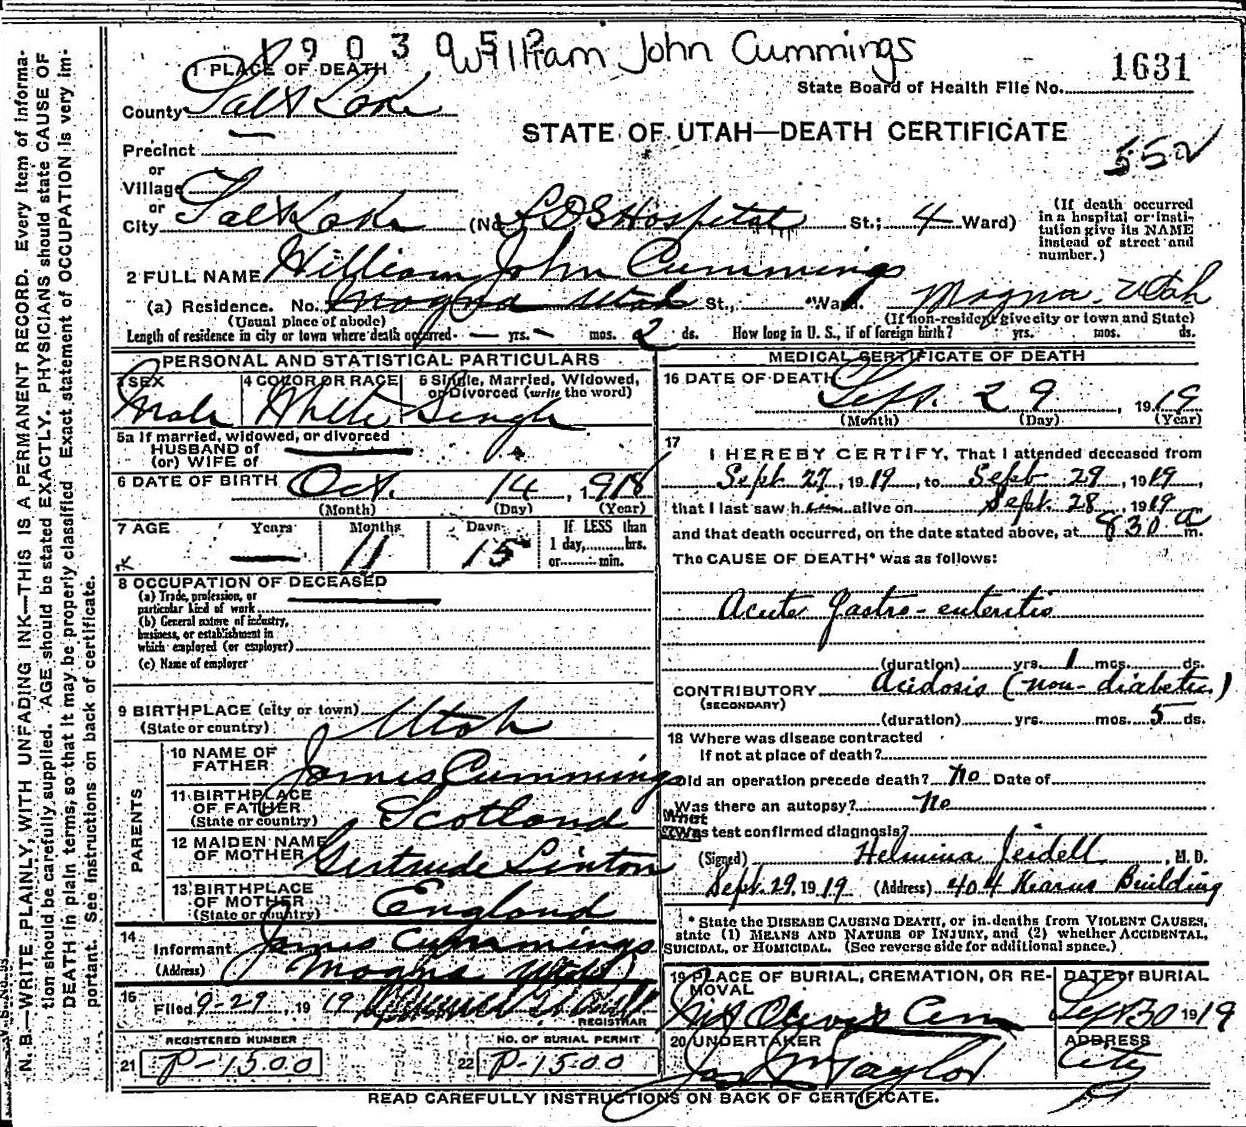 1903052
William John Cummings
1631
State Board of Health File No.
1 PLACE OF DEATH
County Salt Lake
STATE OF UTAH—DEATH CERTIFICATE
552
Precinct
or
Village
or
City Salt Lake (No. LDS Hospital St.; 4 Ward)
(If death occurred in a hospital or institution give its NAME instead of street and number.)
2 FULL NAME William John Cummings
(a) Residence. No. Magna Utah St., Ward. Magna. Utah
(Usual place of abode) (If non-resident give city or town and State)
Length of residence in city or town where death occurred — yrs. — mos. 2 ds. How long in U. S., if of foreign birth? yrs. mos. ds.
PERSONAL AND STATISTICAL PARTICULARS
3 SEX Male
4 COLOR OR RACE White
5 Single, Married, Widowed, or Divorced (write the word) Single
5a If married, widowed, or divorced
HUSBAND of
(or) WIFE of
6 DATE OF BIRTH Oct. 14, 1918
(Month) (Day) (Year)
7 AGE Years — Months 11 Days 15 If LESS than 1 day, hrs. or min.
8 OCCUPATION OF DECEASED
(a) Trade, profession, or particular kind of work
(b) General nature of industry, business, or establishment in which employed (or employer)
(c) Name of employer
9 BIRTHPLACE (city or town) Utah
(State or country)
PARENTS
10 NAME OF FATHER James Cummings
11 BIRTHPLACE OF FATHER Scotland
(State or country)
12 MAIDEN NAME OF MOTHER Gertrude Linton
13 BIRTHPLACE OF MOTHER England
(State or country)
14 Informant James Cummings
(Address) Magna Utah
15 Filed 9-29, 1919
REGISTRAR
REGISTERED NUMBER
21 P-1500
NO. OF BURIAL PERMIT
22 P-1500
MEDICAL CERTIFICATE OF DEATH
16 DATE OF DEATH Sept. 29, 1919
(Month) (Day) (Year)
17 I HEREBY CERTIFY, That I attended deceased from
Sept 27, 1919, to Sept 29, 1919,
that I last saw him alive on Sept. 28, 1919
and that death occurred, on the date stated above, at 830 a m.
The CAUSE OF DEATH* was as follows:
Acute Gastro-enteritis
(duration) yrs. 1 mos. ds.
CONTRIBUTORY Acidosis (non-diabetic)
(SECONDARY)
(duration) yrs. mos. 5 ds.
18 Where was disease contracted
If not at place of death?
Did an operation precede death? No Date of
Was there an autopsy? No
What test confirmed diagnosis?
(Signed) Helmina Jeidell, M. D.
Sept. 29, 1919 (Address) 404 Kearns Building
* State the DISEASE CAUSING DEATH, or in deaths from VIOLENT CAUSES, state (1) MEANS AND NATURE OF INJURY, and (2) whether ACCIDENTAL, SUICIDAL, or HOMICIDAL. (See reverse side for additional space.)
19 PLACE OF BURIAL, CREMATION, OR REMOVAL
Mt Olivet Cem
DATE of BURIAL
Sept 30 1919
20 UNDERTAKER
Taylor
ADDRESS
City
READ CAREFULLY INSTRUCTIONS ON BACK OF CERTIFICATE.
N. B.—WRITE PLAINLY, WITH UNFADING INK—THIS IS A PERMANENT RECORD. Every item of information should be carefully supplied. AGE should be stated EXACTLY. PHYSICIANS should state CAUSE OF DEATH in plain terms, so that it may be properly classified. Exact statement of OCCUPATION is very important. See instructions on back of certificate.